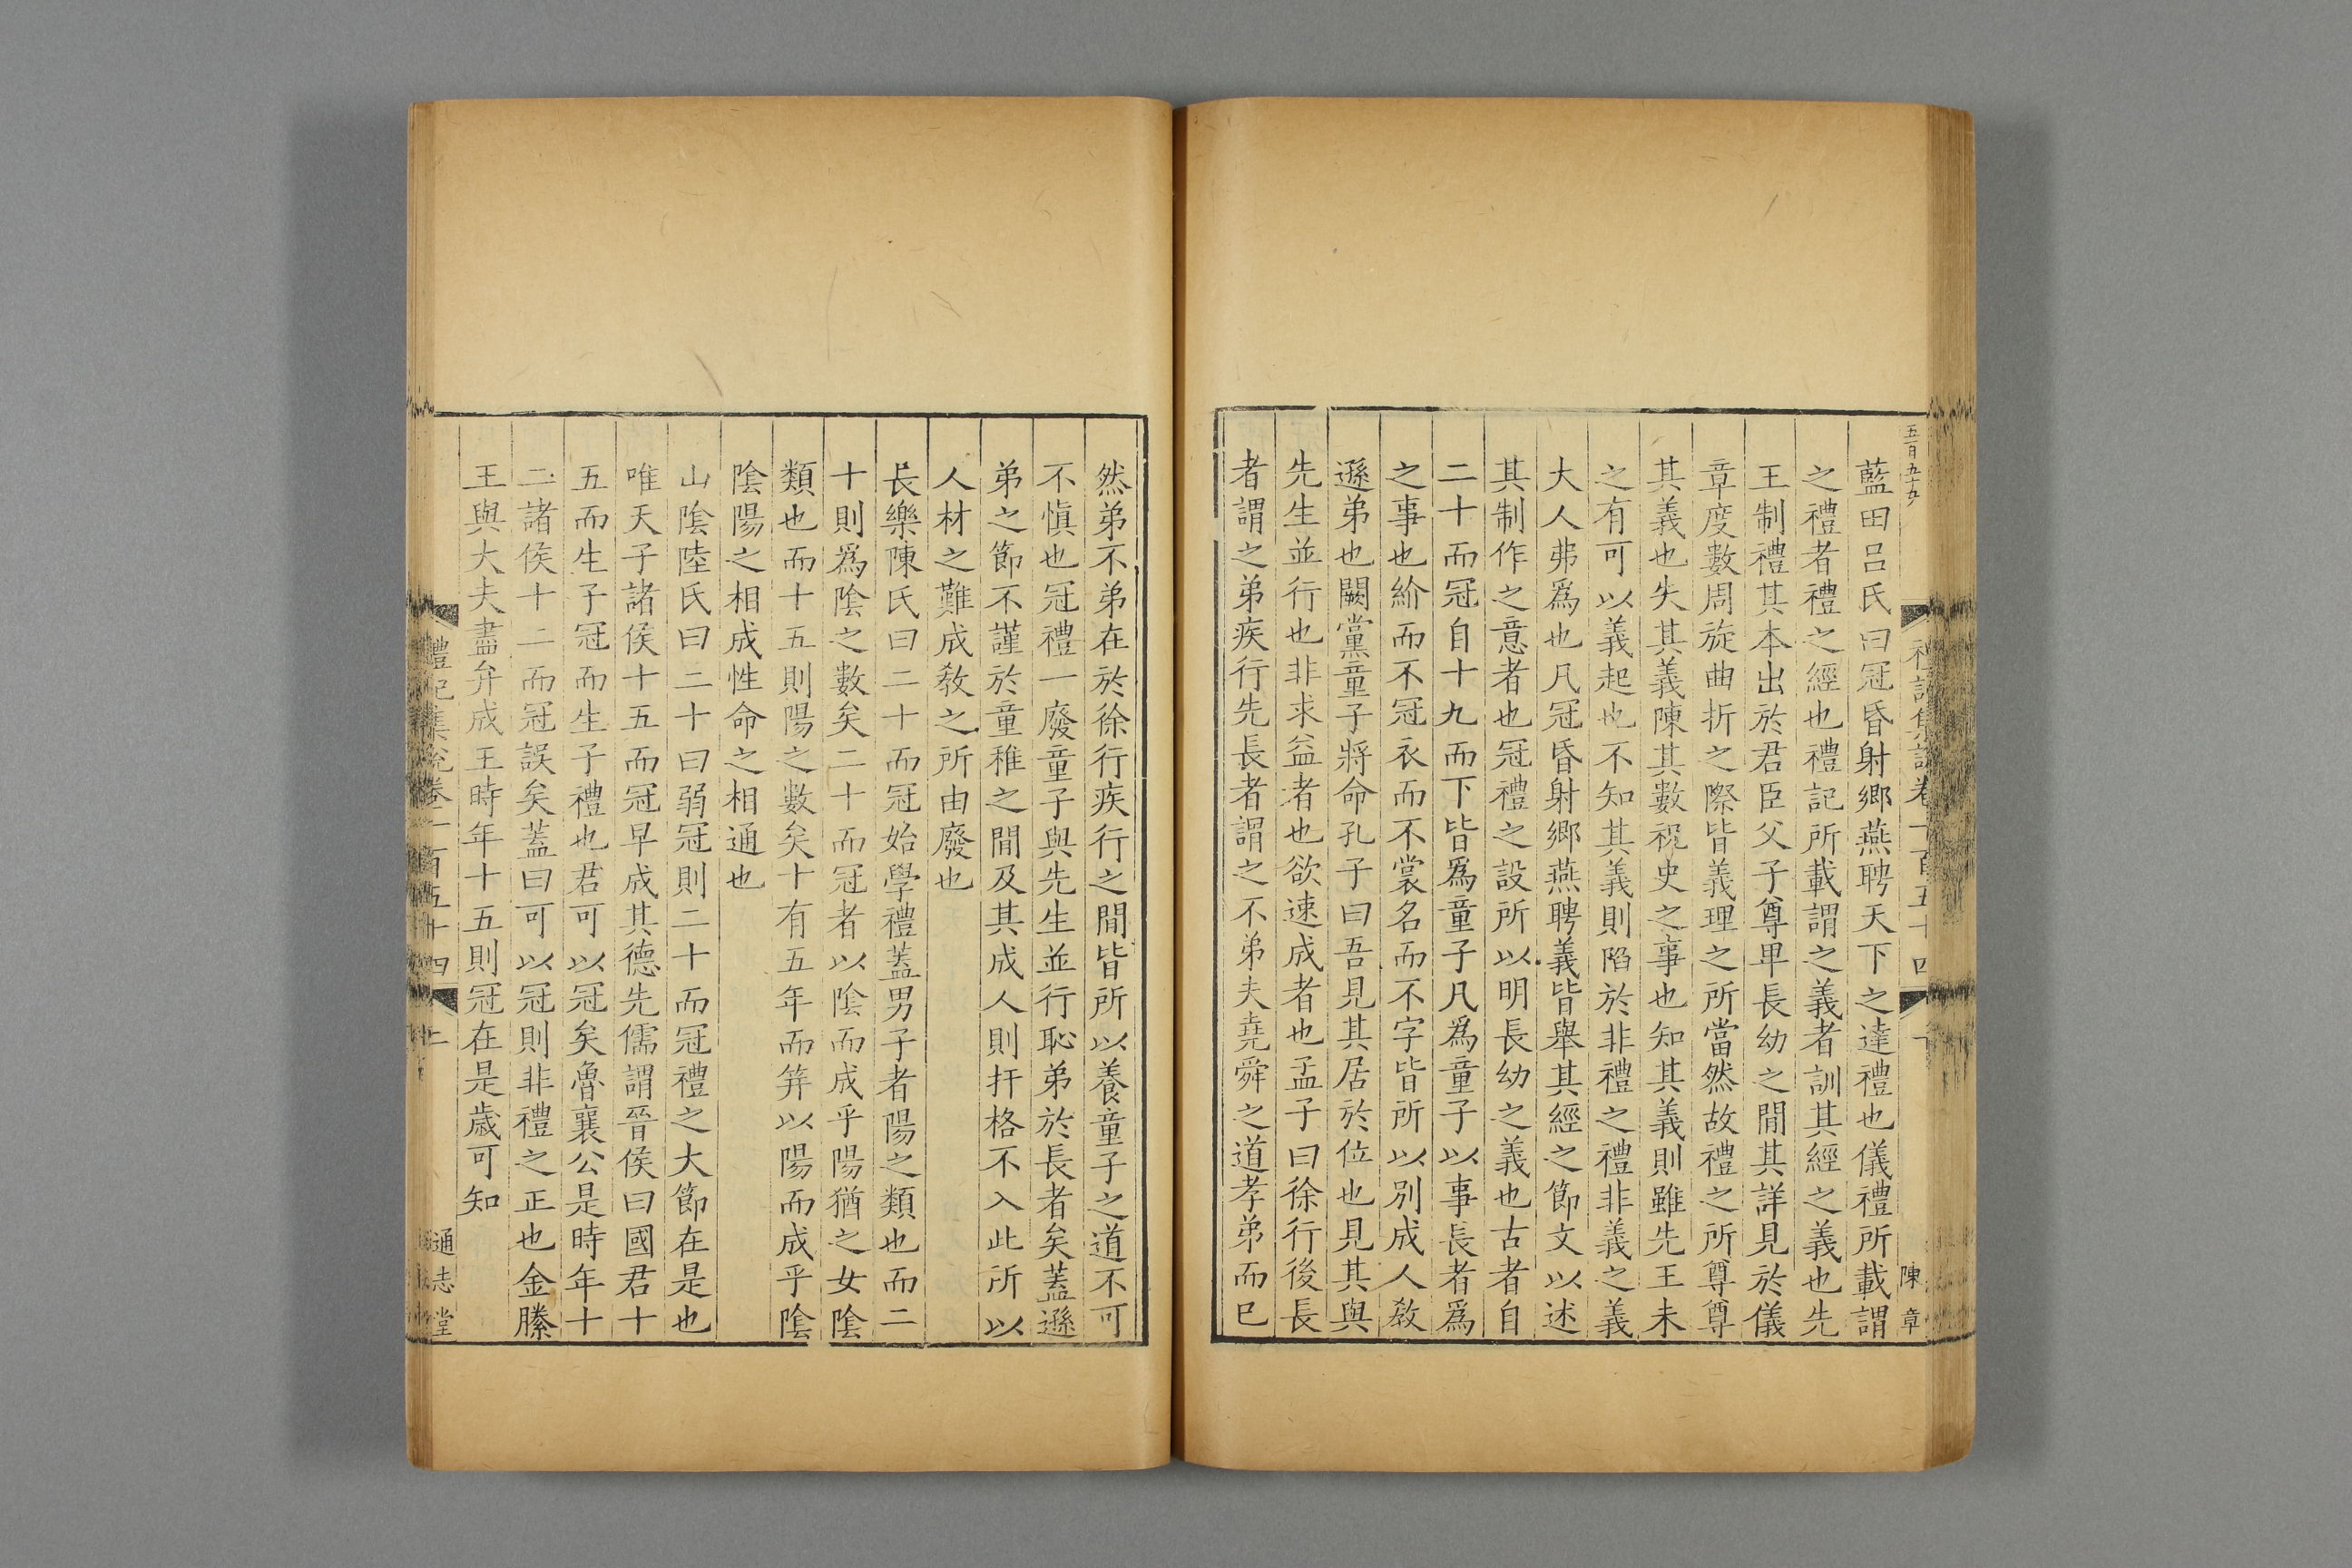 五百九十九
陳章
藍田呂氏曰冠昏射鄉燕聘天下之達禮也儀禮所載謂
之禮者禮之經也禮記所載謂之義者訓其經之義也先
王制禮其本出於君臣父子尊卑長幼之閒其詳見於儀
章度數周旋曲折之際皆義理之所當然故禮之所尊尊
其義也失其義陳其數祝史之事也知其義則雖先王未
之有可以義起也不知其義則陷於非禮之禮非義之義
大人弗爲也凡冠昏射鄉燕聘義皆舉其經之節文以述
其制作之意者也冠禮之設所以明長幼之義也古者自
二十而冠自十九而下皆爲童子凡爲童子以事長者爲
之事也紒而不冠衣而不裳名而不字皆所以別成人敎
遜弟也闕黨童子將命孔子曰吾見其居於位也見其與
先生並行也非求益者也欲速成者也孟子曰徐行後長
者謂之弟疾行先長者謂之不弟夫堯舜之道孝弟而已
然弟不弟在於徐行疾行之閒皆所以養童子之道不可
不愼也冠禮一廢童子與先生並行恥弟於長者矣蓋遜
弟之節不謹於童稚之閒及其成人則扞格不入此所以
人材之難成敎之所由廢也
長樂陳氏曰二十而冠始學禮蓋男子者陽之類也而二
十則爲陰之數矣二十而冠者以陰而成乎陽猶之女陰
類也而十五則陽之數矣十有五年而筓以陽而成乎陰
陰陽之相成性命之相通也
山陰陸氏曰二十曰弱冠則二十而冠禮之大節在是也
唯天子諸侯十五而冠早成其德先儒謂晉侯曰國君十
五而生子冠而生子禮也君可以冠矣魯襄公是時年十
二諸侯十二而冠誤矣蓋曰可以冠則非禮之正也金縢
王與大夫盡弁成王時年十五則冠在是歲可知
禮記集說卷一百五十四
通志堂